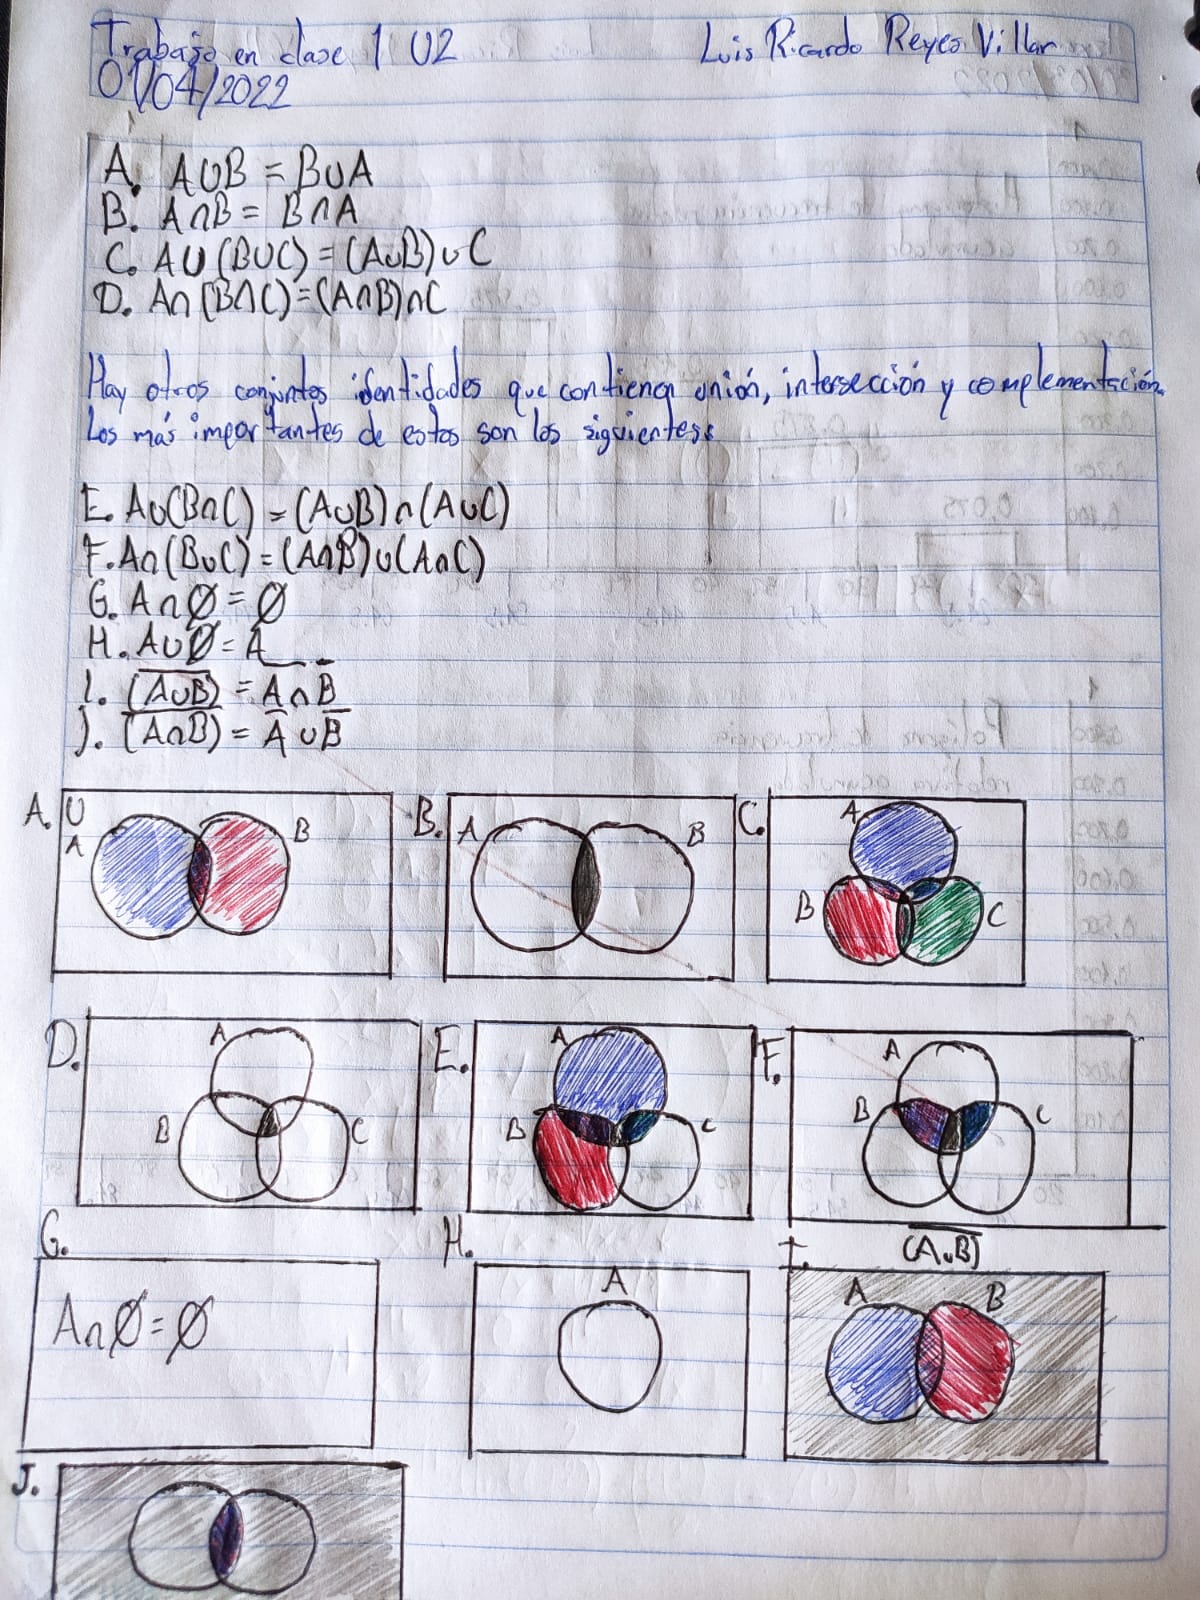 Trabajo en clase 1 U2 Luis Ricardo Reyes Villar
01/04/2022
A. A∪B = B∪A
B. A∩B = B∩A
C. A∪(B∪C) = (A∪B)∪C
D. A∩(B∩C) = (A∩B)∩C
Hay otros conjuntos identidades que contienen unión, intersección y complementación.
Los más importantes de estos son los siguientes:
E. A∪(B∩C) = (A∪B)∩(A∪C)
F. A∩(B∪C) = (A∩B)∪(A∩C)
G. A∩∅ = ∅
H. A∪∅ = A
I. (A∪B)̅ = A̅∩B̅
J. (A∩B)̅ = A̅∪B̅
A. U A B
B. A B
C. A B C
D. A B C
E. A B C
F. A B C
G.
A∩∅=∅
H. A
I. (A∪B)̅
A B
J.